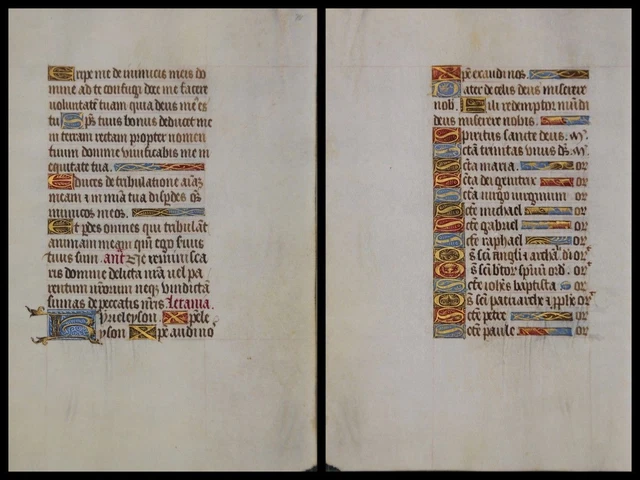 Eripe me de inimicis meis do
mine ad te confugi doce me facere
voluntatē tuam quia deus meꝰ es
tu Spūs tuus bonus deducet me
in terram rectam propter nomen
tuum domine vivificabis me in
equitate tua.
Educes de tribulatione aīaȝ
meam ⁊ in mīa tua disꝑdes oēs
inimicos meos.
Et ꝑdes omnes qui tribulāt
animam meam qm̄ ego servus
tuus sum. ant̄ Ne reminisca
ris domine delicta nr̄a vel pa
rentum nr̄orum neqȝ vindictā
sumas de peccatis nr̄is. Letania.
Kyrieleyson Xpelē
yson Xpe audi no
Xpe exaudi nos.
Pater de celis deus miserere
nob. Fili redemptor mūdi
deus miserere nobis.
Spiritus sancte deus. mꝰ.
Sctā trinitas unus ds̄. mꝰ.
Sctā maria. or
Sctā dei genitrix or
Sctā virgo virginum or
Sctē michael or
Sctē gabriel or
Sctē raphael or
Oēs sctī angli ⁊ archāgli or
Oēs sctī btōr spirituū ord. or
Sctē iohēs baptista or
Oēs sctī patriarche ⁊ ꝓphē or
Sctē petre or
Sctē paule or